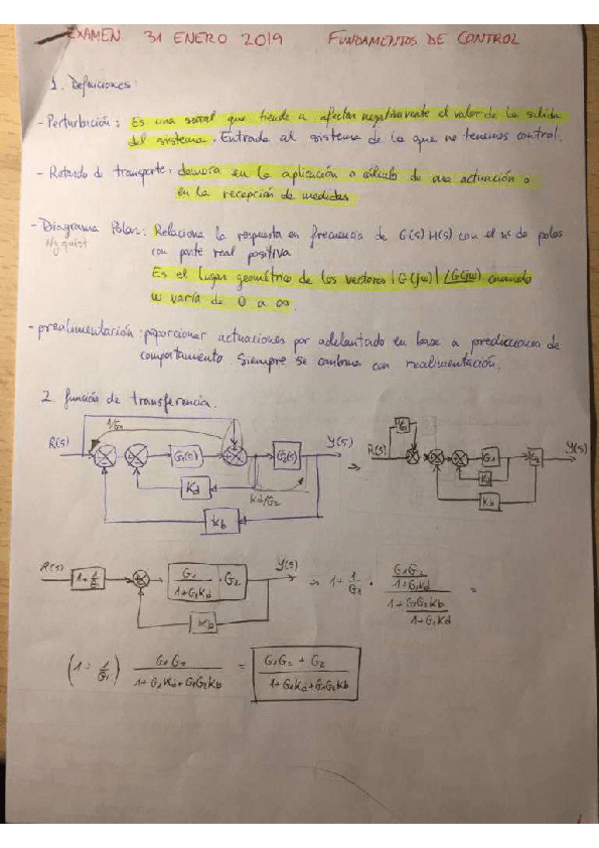 EXAMEN 31 ENERO 2019 FUNDAMENTOS DE CONTROL
1. Definiciones:
- Perturbación: Es una señal que tiende a afectar negativamente el valor de la salida
del sistema. Entrada al sistema de la que no tenemos control.
- Retardo de transporte: demora en la aplicación o cálculo de una actuación o
en la recepción de medidas
- Diagrama Polar: Relaciona la respuesta en frecuencia de G(s) H(s) con el nº de polos
Nyquist con parte real positiva
Es el lugar geométrico de los vectores |G(jω)| ∠G(jω) cuando
ω varía de 0 a ∞.
- prealimentación: proporcionar actuaciones por adelantado en base a predicciones de
comportamiento. Siempre se combina con realimentación.
2. función de transferencia.
1/G1
R(s) G1(s) G2(s) Y(s) ⇒ R(s) G1 G2 Y(s)
Kd Kd/G2 Kd
Kb Kb
R(s) 1+1/G1 G1/(1+G1Kd) · G2 Y(s) ⇒ 1+1/G1 · (G1G2/(1+G1Kd))/(1+G1G2Kb/(1+G1Kd)) =
Kb
(1+1/G1) G1G2/(1+G1Kd+G1G2Kb) = (G1G2+G2)/(1+G1Kd+G1G2Kb)